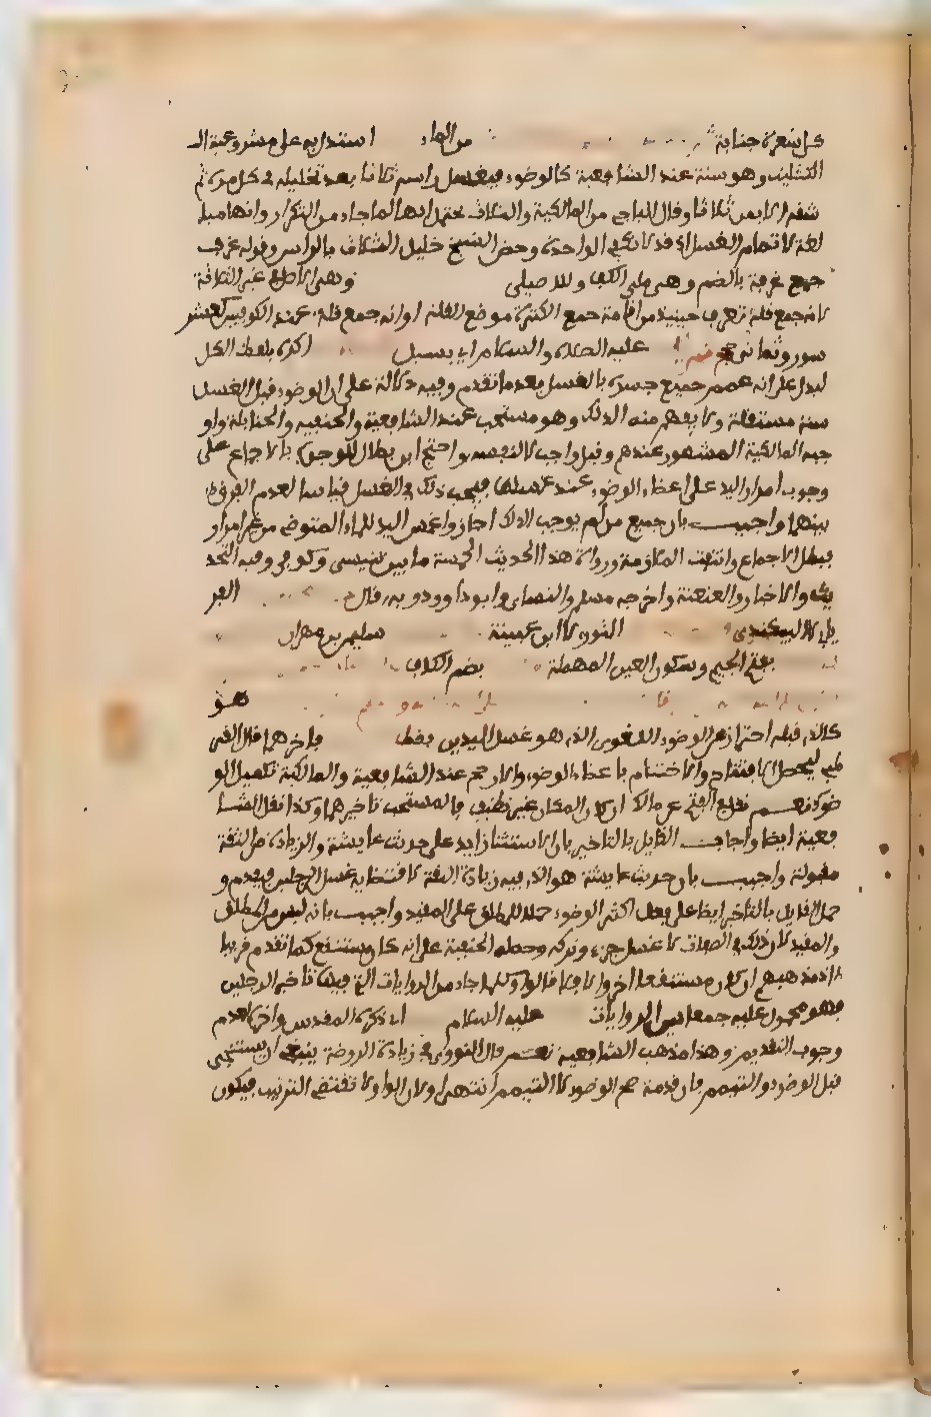 كل شعرة جنابة من الماء استدل به على مشروعية الـ
التثليث وهو سنة عند الشافعية كالوضوء فيغسل راسه ثلاثا بعد تخليله في كل مرة ثم
شقه الايمن ثلاثا وقال الباجي من المالكية والثلاث يحتمل انها لما جاء من التكرار وانها مبا
لغة لاتمام الغسل اذ قد لا تكفي الواحدة وخص الشيخ خليل الثلاث بالراس وقوله غرف
جمع غرفة بالضم وهي ملء الكف وللاصيلي وهي الاصل في مميز الثلاثة
لانه جمع قلة فغرف حينئذ من اقامة جمع الكثرة موضع القلة او انه جمع قلة عند الكوفيين كعشر
سور وثماني حجج عليه الصلاة والسلام اي يسيل اكده بلفظ الكل
ليدل على انه عمم جميع جسده بالغسل بعد ما تقدم وفيه دلالة على ان الوضوء قبل الغسل
سنة مستقلة ولا يفهم منه الدلك وهو مستحب عند الشافعية والحنفية والحنابلة واو
جبه المالكية في المشهور عندهم وقيل واجب لا لنفسه واحتج ابن بطال للوجوب بالاجماع على
وجوب امرار اليد على اعضاء الوضوء عند غسلها فيجب ذلك في الغسل قياسا لعدم الفرق
بينهما واجيب بان جميع من لم يوجب الدلك اجازوا غمس اليد في الماء للمتوضي من غير امرار
فبطل الاجماع وانتفت الملازمة ورواة هذا الحديث الخمسة ما بين تنيسي وكوفي وفيه التحد
يث والاخبار والعنعنة واخرجه مسلم والنسائي وابو داوود وبه قال الفر
يابي لا البيكندي الثوري لا ابن عيينة سليمن بن مهران
بفتح الجيم وسكون العين المهملة بضم الكاف
هو
كالذي قبله احترازا عن الوضوء اللغوي الذي هو غسل اليدين فقط فاخرهما قال القر
طبي ليحصل الافتتاح والاختتام باعضاء الوضوء والارجح عند الشافعية والمالكية تكميل الو
ضوء نعم نقل في الفتح عن مالك ان كان المكان غير نظيف فالمستحب تاخيرهما وكذا نقل الشا
فعية ايضا واجاب القايل بالتاخير بان الاستثنا زايد على حديث عايشة والزيادة من الثقة
مقبولة واجيب بان حديث عايشة هو الذي فيه زيادة الثقة لاقتضايه غسل الرجلين فيقدم و
حمل القايل بالتاخير ايضا على فعل اكثر الوضوء حملا للمطلق على المقيد واجيب بانه ليس من المطلق
والمقيد لان ذلك في الصفات لا غسل جزء وتركه وحمله الحنفية على انه كان مستنقع كما تقدم قريبا
اذ مذهبهم ان كان مستنقعا اخر والا فلا قالوا وكلما جاء من الروايات التي فيها تاخير الرجلين
فهو محمول عليه جمعا بين الروايات عليه السلام اي ذكره المقدس واخره لعدم
وجوب التقديم وهذا مذهب الشافعية نعم قال النووي في زيادة الروضة ينبغي ان يستنجي
قبل الوضوء والتيمم فان قدمه صح الوضوء لا التيمم انتهى ولان الواو لا تقتضي الترتيب فيكون